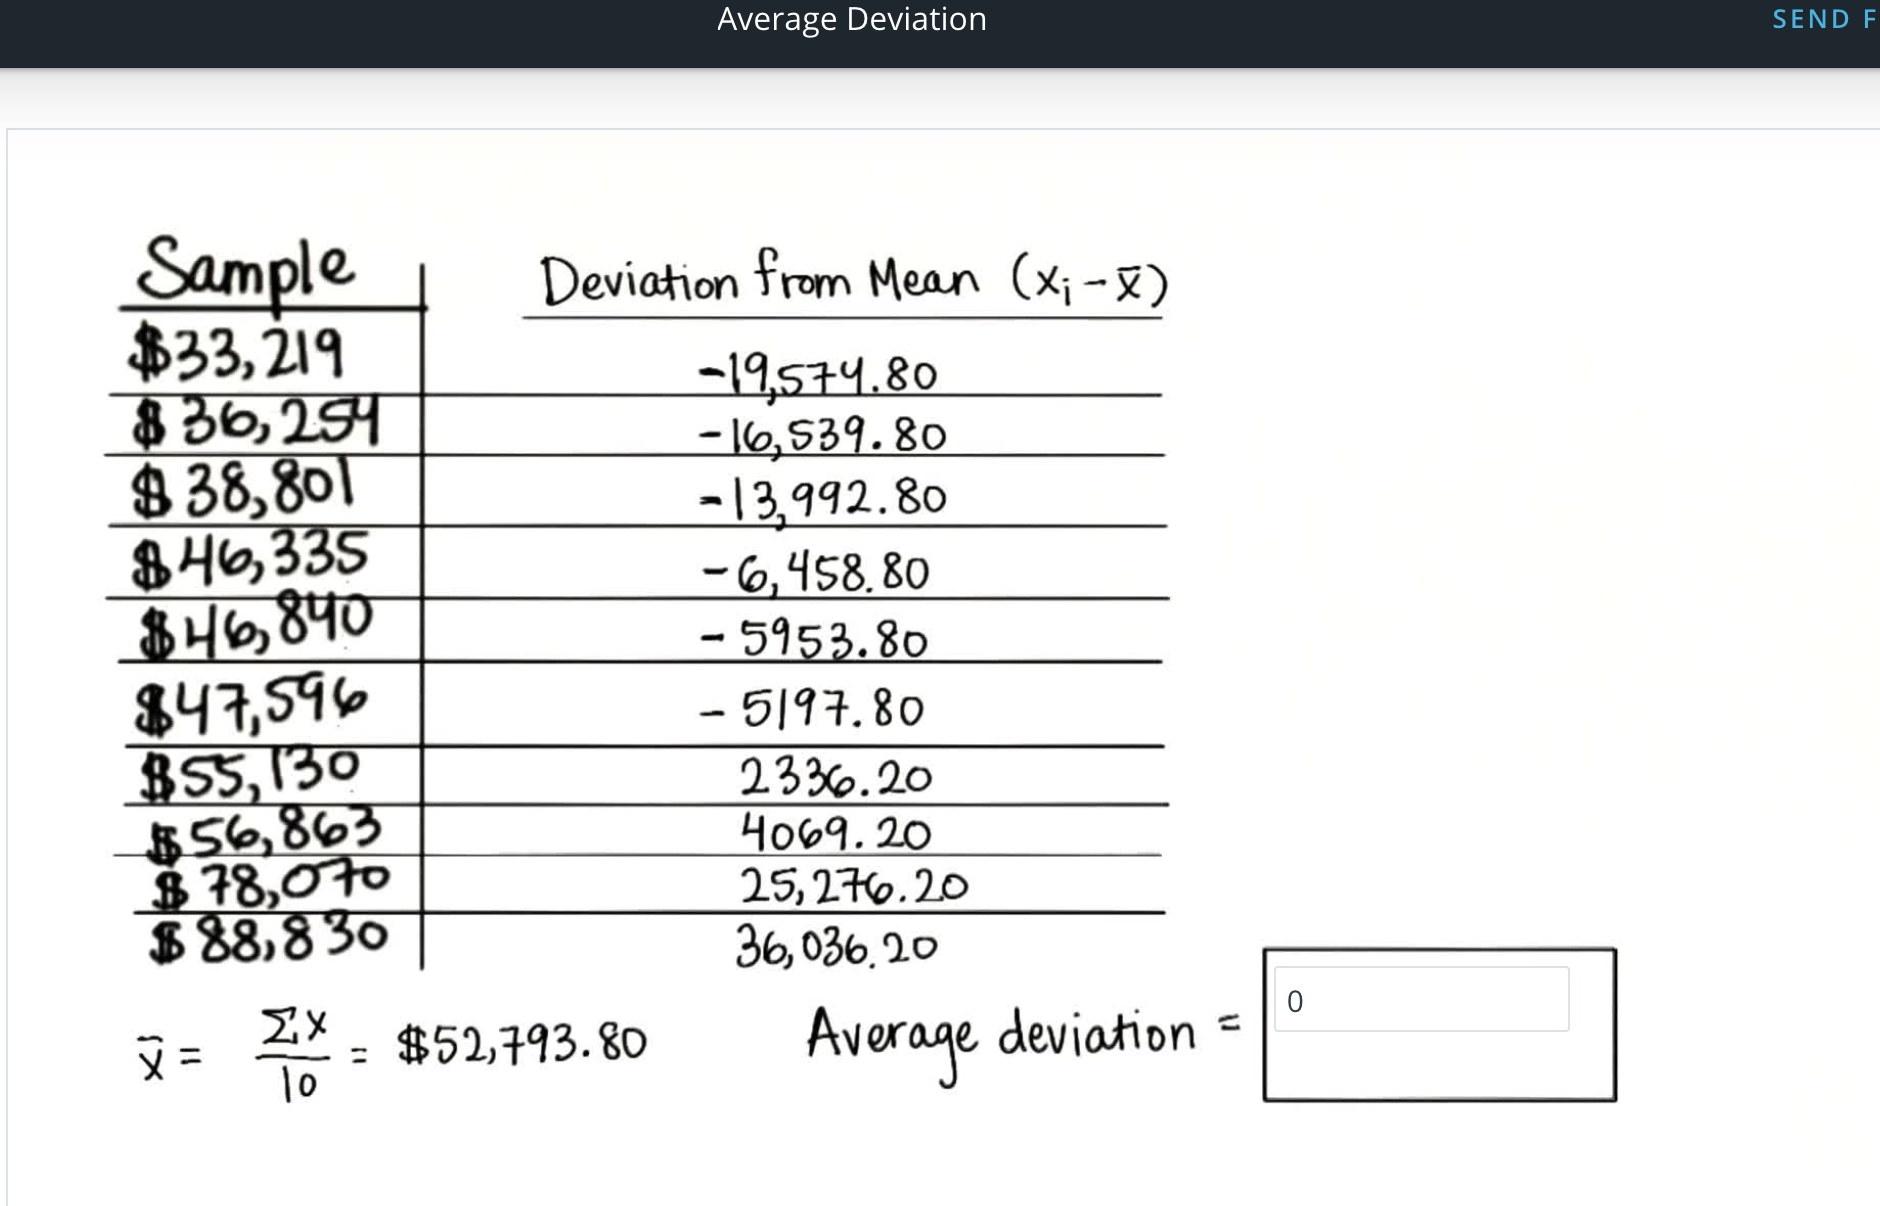 Average Deviation
SEND F
Sample
Deviation from Mean (xᵢ - x̄)
$33,219
-19,574.80
$36,254
-16,539.80
$38,801
-13,992.80
$46,335
-6,458.80
$46,840
-5953.80
$47,596
-5197.80
$55,130
2336.20
$56,863
4069.20
$78,070
25,276.20
$88,830
36,036.20
x̄ = Σx/10 = $52,793.80
Average deviation = 0